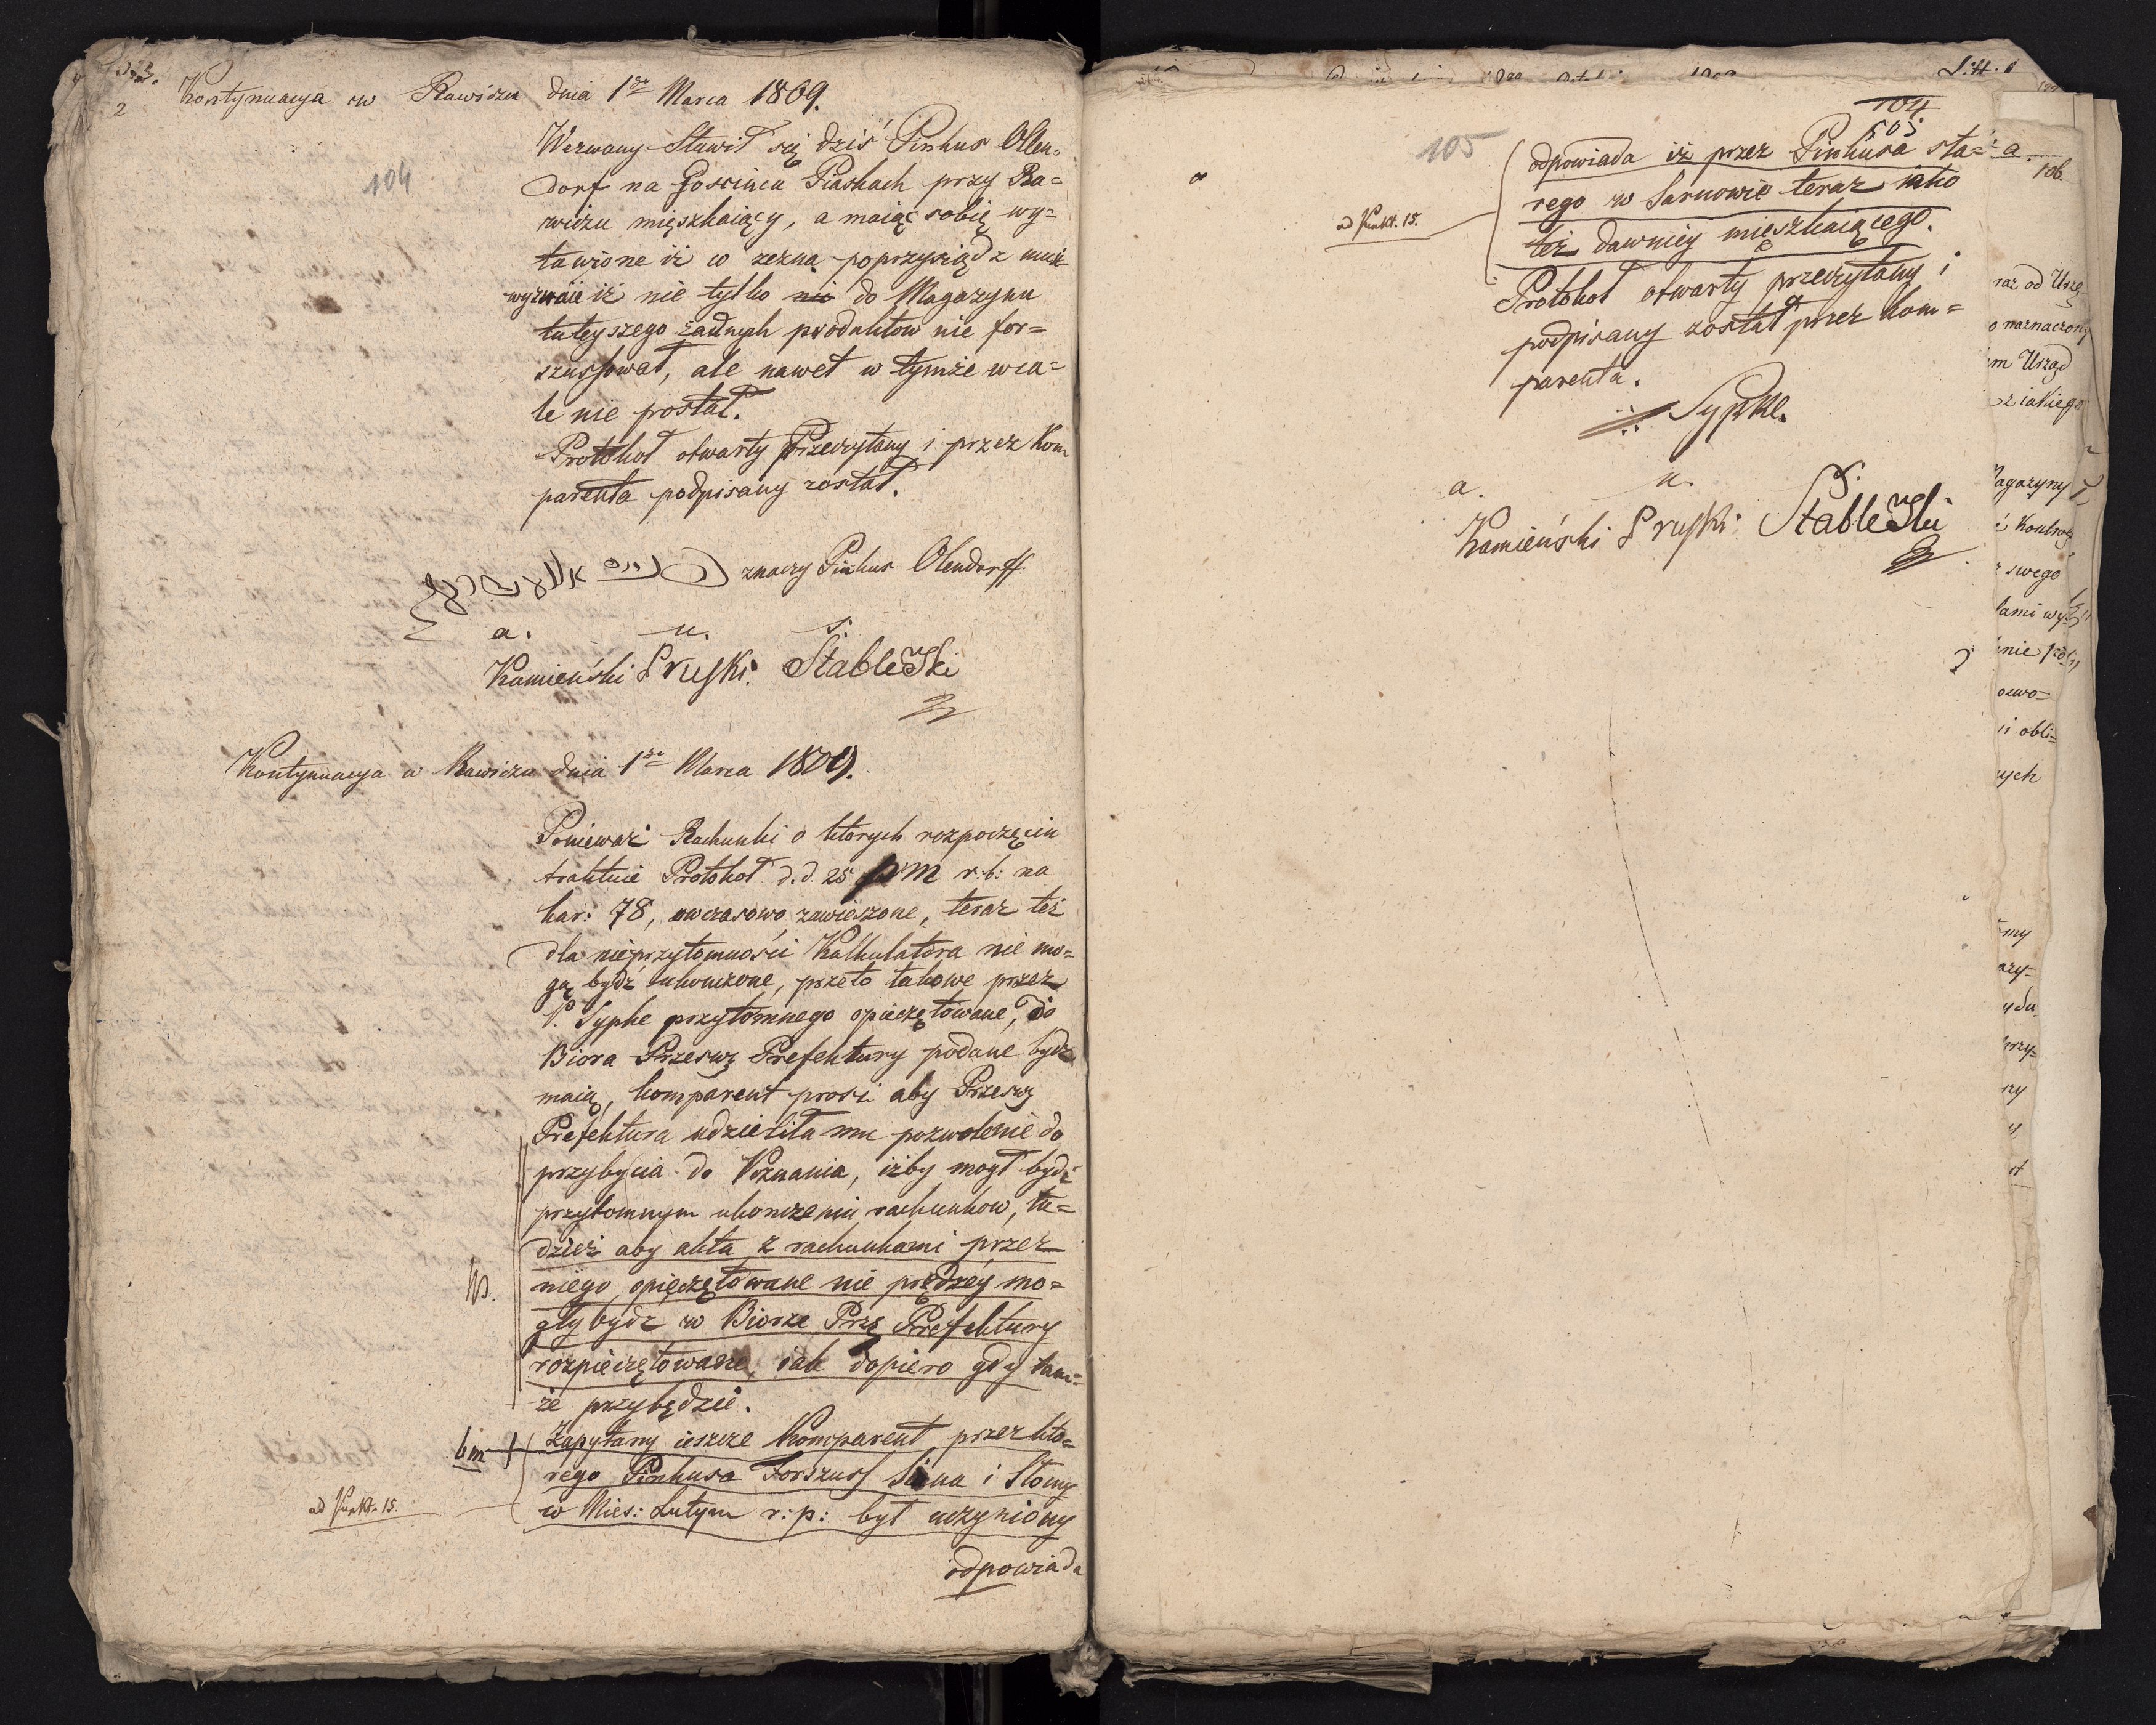 Kontynuacyja w Rawiczu dnia 1go Marca 1809.
2
104
Wezwany Stawił się dziś Pinkus Ollen-
dorf na Gościńcu Piaskach przy Ra-
wiczu mięszkaiący, a maiąc sobię wy-
tawione iż co zezna poprzysiądz musi
wyznaie iż nie tylko nic do Magazynu
tuteyszego żadnych produktow nie for-
szussował, ale nawet w tymże wca-
le nie postał.
Protokoł otwarty Przeczytany i przez Kom
parenta podpisany został.
znaczy Pinkus Olendorff.
a. u. s.
Kamieński Pruski. Stableski
Kontynuacyja w Rawiczu dnia 1go Marca 1809.
Ponieważ Rachunki o ktorych rozpoczęciu
traktuie Protokoł d.d. 25 r:b: na
kar: 78, owczasowo zawieszone, teraz też
dla nieprzytomności Kalkulatora nie mo-
gą bydź ukończone, przeto takowe przez
P. Sypke przytomnego opieczętowane, do
Biora Przeswę Prefektury podane bydź
maią, komparent prosi aby Przeswę
Prefektura udzieliła mu pozwolenie do
przybycia do Poznania, iżby mogł bydź
przytomnym ukończeniu rachunkow, tu-
dzież aby akta z rachunkami przez
niego opieczętowane nie prędzey mo-
gły bydź w Biorze Prze Prefektury
rozpieczętowane, iak dopiero gdy tam-
że przybędzie.
Zapytany ieszcze Komparent przez kto-
rego Pinkusa Forszuss Siana i Słomy
ad Punkt. 15.
w Mies: Lutym r:p: był uczyniony
odpowiada
Litt.
104
105
105
odpowiada iż przez Pinkusa sta-
rego w Sarnowie teraz iako
ad Punkt. 15.
też dawniey mięszkaiącego.
Protokoł otwarty przeczytany i
podpisany został przez kom-
parenta.
Sypke.
a. u. s.
Kamieński Pruski. Stableski
a.
106.
raz od Urzę
o naznaczony
m Urząd
z iakiego
agazyny
i Kontrol
swego
lami wy
nie
ozwo-
i obli-
ych
my
azy-
rzy-
rzy